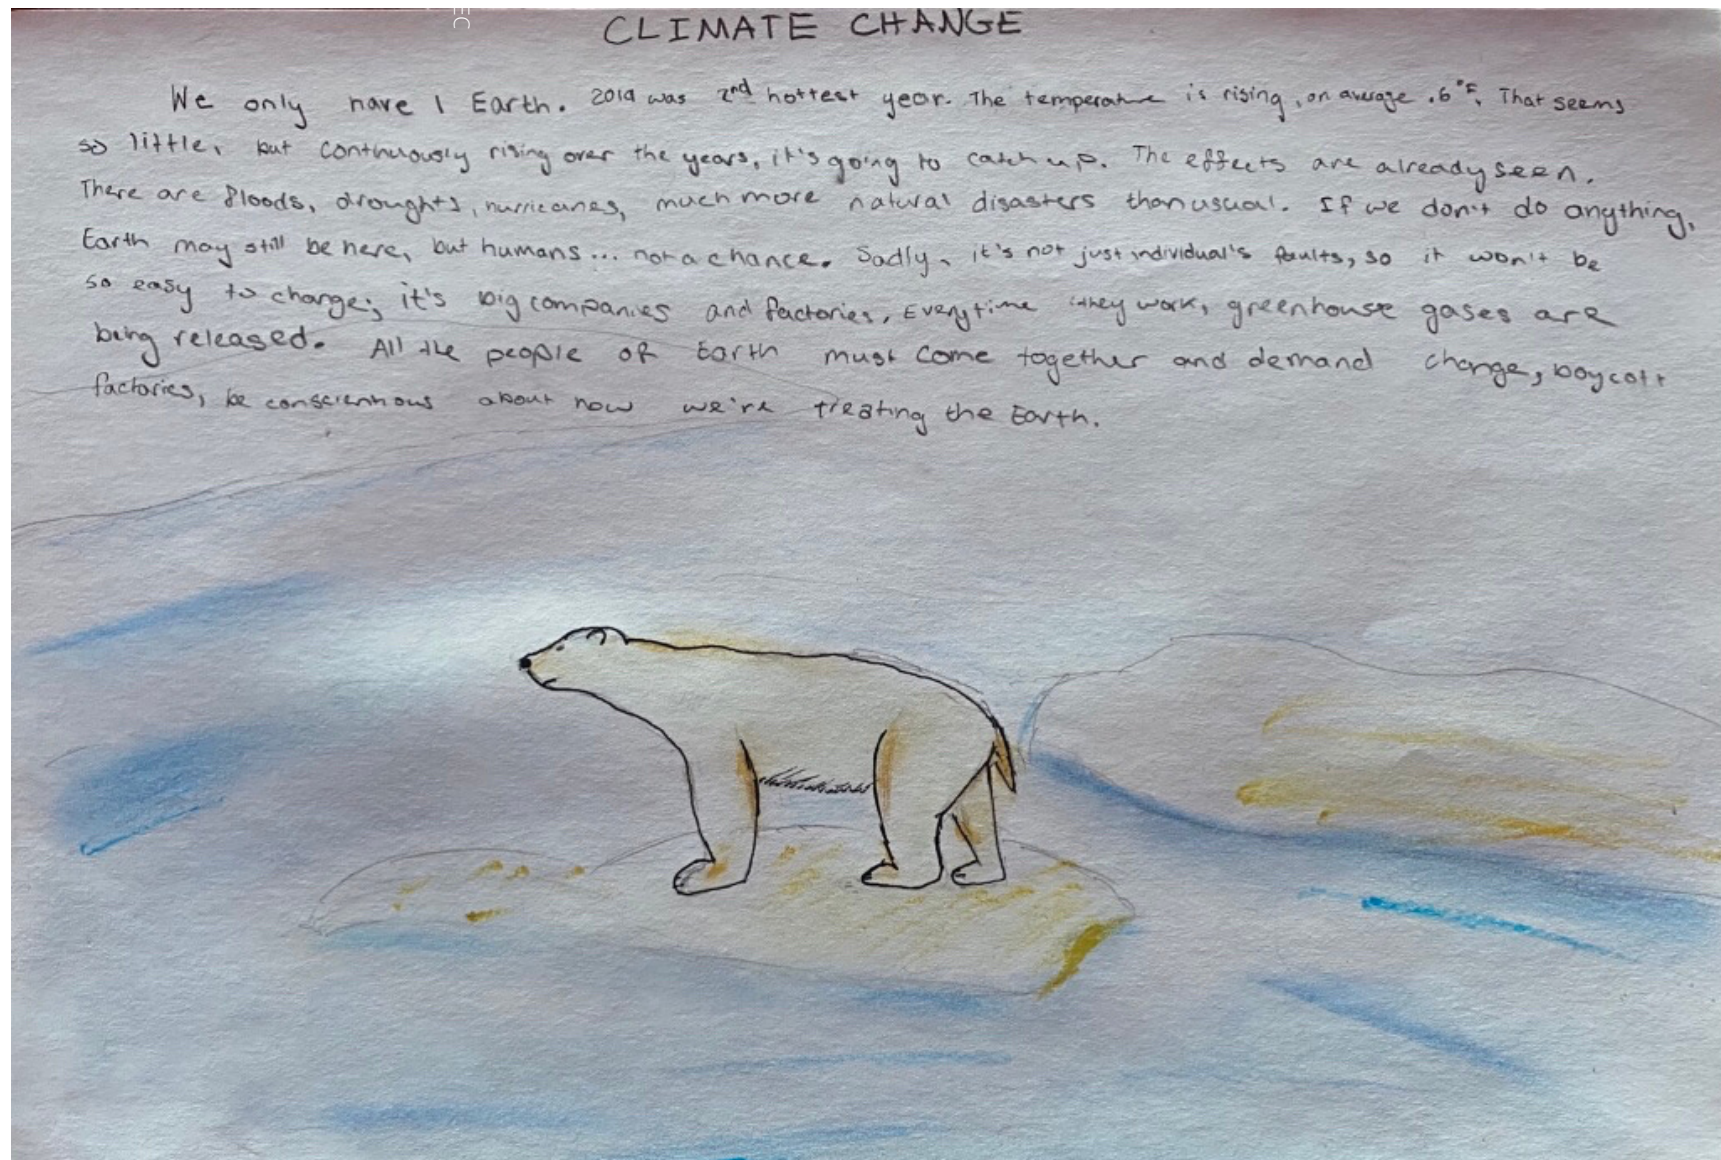 CLIMATE CHANGE
We only have 1 Earth. 2019 was 2nd hottest year. The temperature is rising, on average .6°F. That seems
so little, but continuously rising over the years, it's going to catch up. The effects are already seen.
There are floods, droughts, hurricanes, much more natural disasters than usual. If we don't do anything,
Earth may still be here, but humans... not a chance. Sadly, it's not just individual's faults, so it won't be
so easy to change; it's big companies and factories. Everytime they work, greenhouse gases are
being released. All the people of Earth must come together and demand change, boycott
factories, be conscientious about how we're treating the Earth.